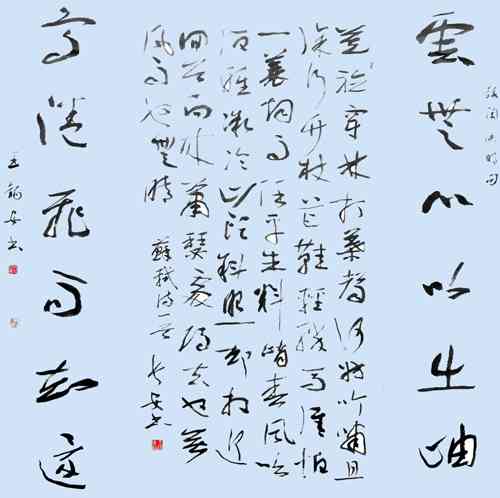 雲無心以出岫
莫聽穿林打葉聲何妨吟嘯且
徐行竹杖芒鞋輕勝馬誰怕
一蓑烟雨任平生料峭春風吹
酒醒微冷山頭斜照却相迎
回首向來蕭瑟處歸去也無
風雨也無晴
蘇軾詩一首
鳥倦飛而知還